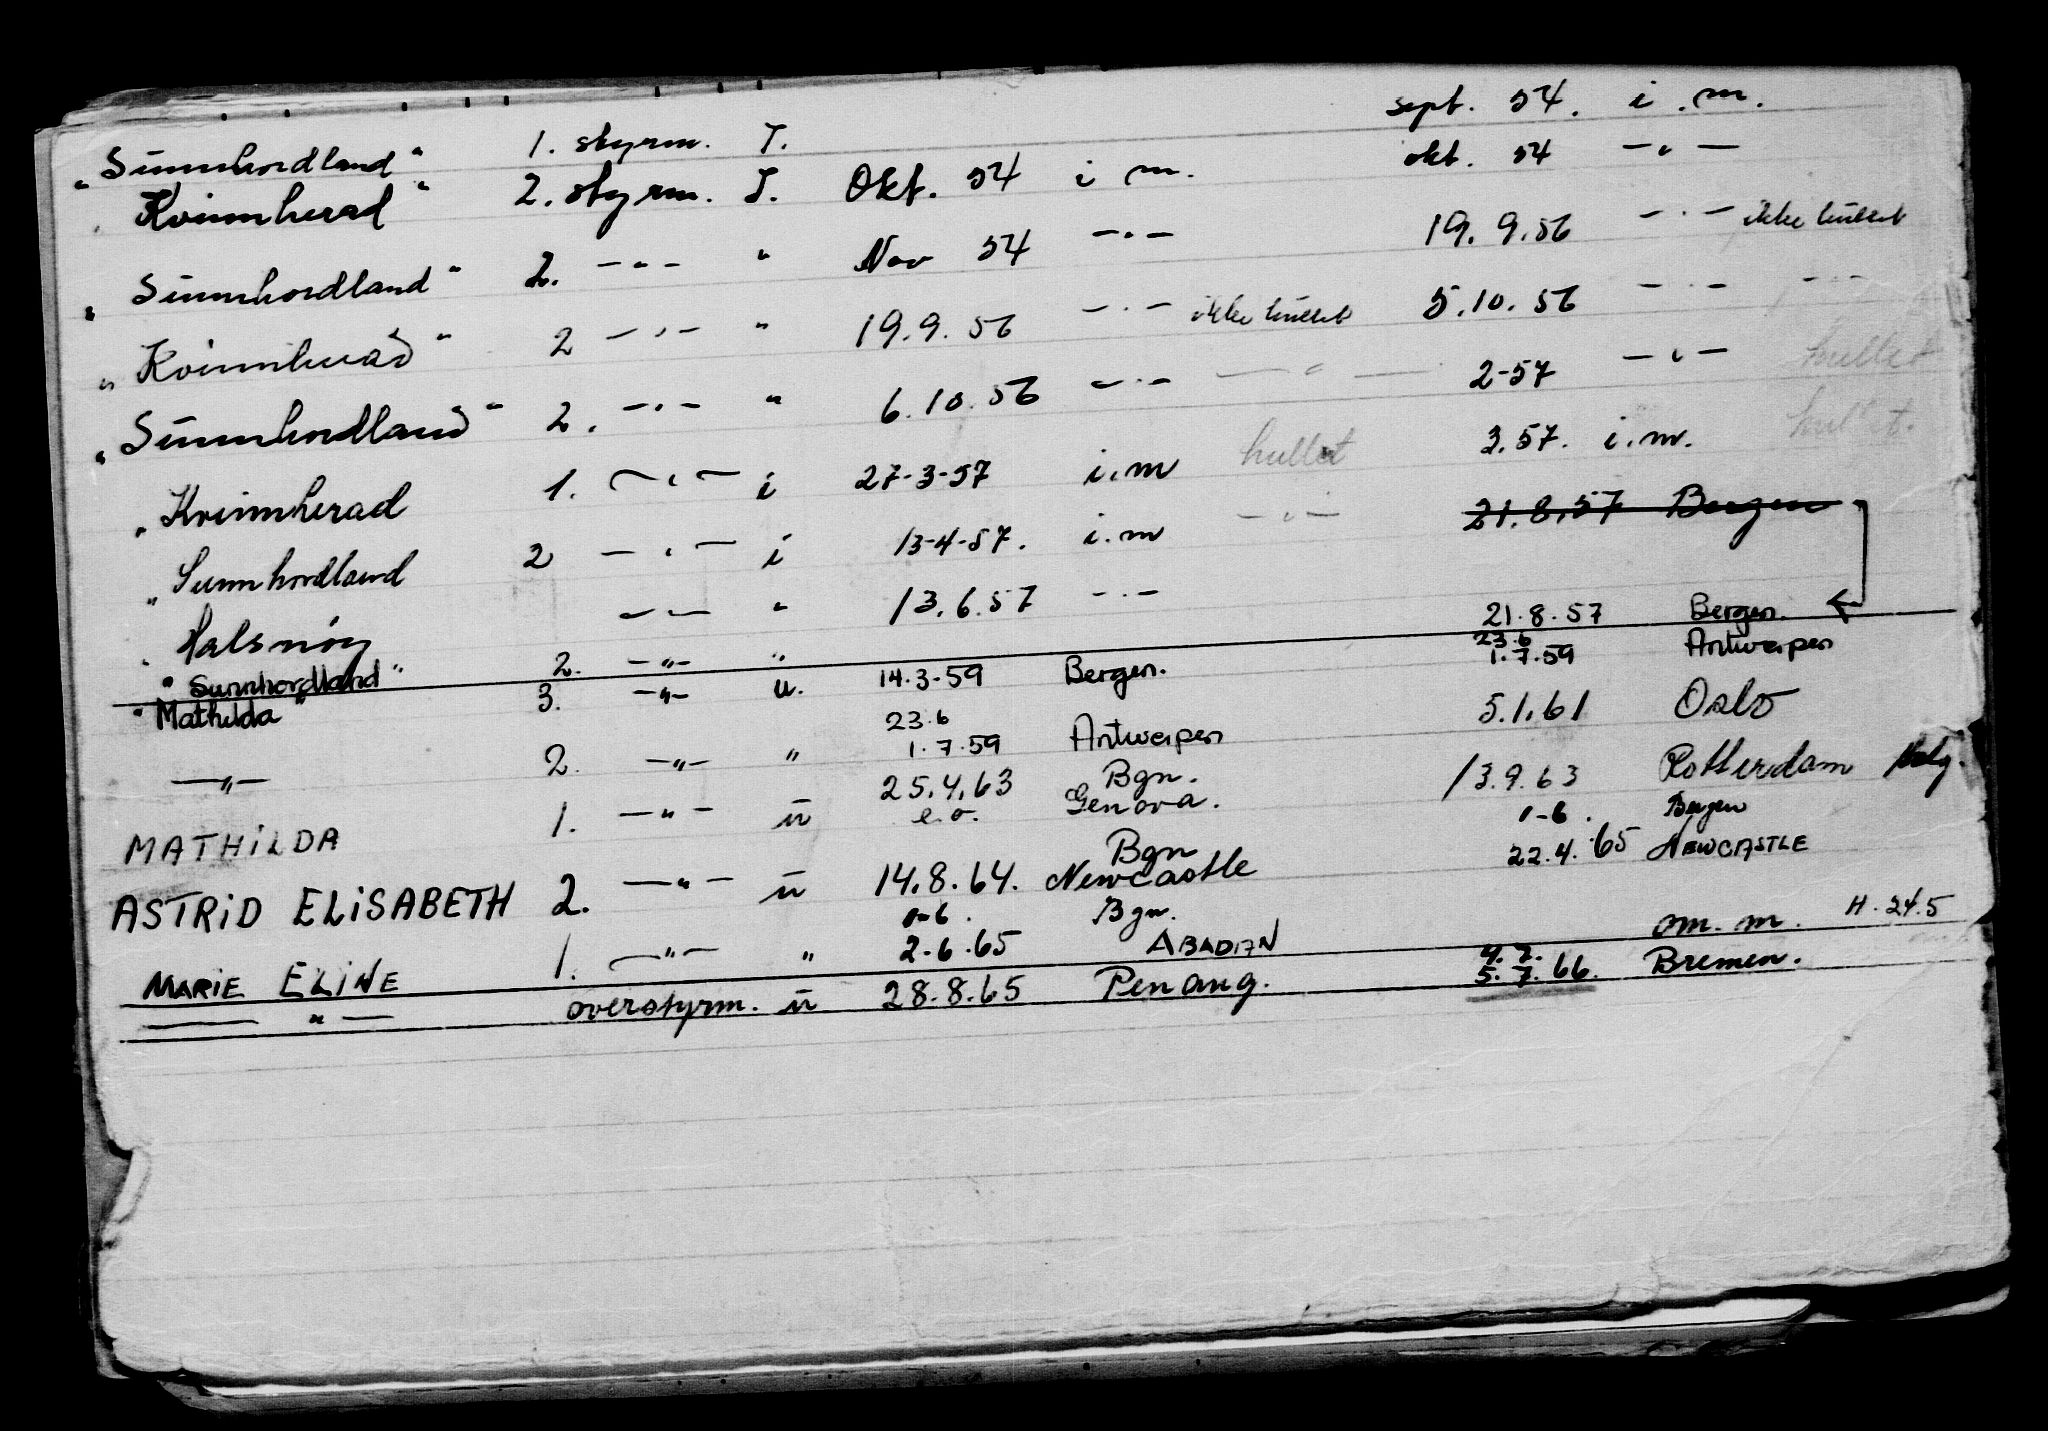 "Sunnhordland" 1. styrm. I. sept. 54. i.m.
"Kvinnherad" 2. styrm. I. Okt. 54 i m. okt. 54 —"—
"Sunnhordland" 2. —"— " Nov 54 —"— 19.9.56 —"— ikke hullet
"Kvinnherad" 2 —"— " 19.9.56 —"— ikke hullet 5.10.56 —"— —"—
"Sunnhordland" 2. —"— " 6.10.56 —"— —"— 2-57 —"— hullet
"Kvinnherad 1. —"— i 27-3-57 i.m hullet 3.57. i.m. hullet.
"Sunnhordland 2 —"— i 13-4-57. i.m —"— 21.8.57 Bergen
"Halsnöy —"— " 13.6.57 —"—
"Sunnhordland" 2. —"— " 21.8.57 Bergen.
"Mathilda" 3. —"— u. 14.3.59 Bergen. 23.6 1.7.59 Antwerpen
—"— 2. —"— " 23.6 1.7.59 Antwerpen 5.1.61 Oslo
MATHILDA 1. —"— u 25.4.63 Bgn. e.o. Genova. 13.9.63 Rotterdam
ASTRID ELISABETH 2. —"— u 14.8.64. Bgn Newcastle 1-6. Bergen 22.4.65 NEWCASTLE
MARIE ELINE 1. —"— " 1-6. Bgn. 2.6.65 ABADAN om. m. H. 24.5
—"— overstyrm. u 28.8.65 Penang. 4.7. 5.7.66. Bremen.